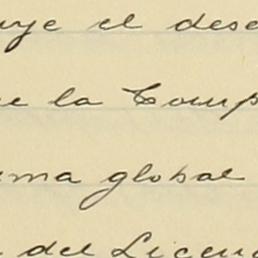 uye el dese
e la Comp
ma global
del Licenc